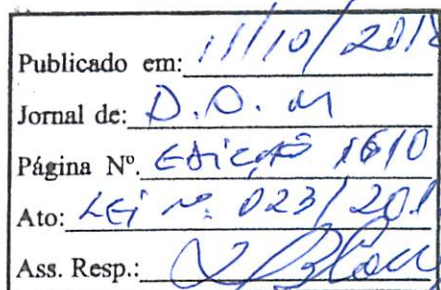 Publicado em: 11/10/2018
Jornal de: D.O.M
Página Nº. Edição 1610
Ato: Lei nº. 023/201
Ass. Resp.: